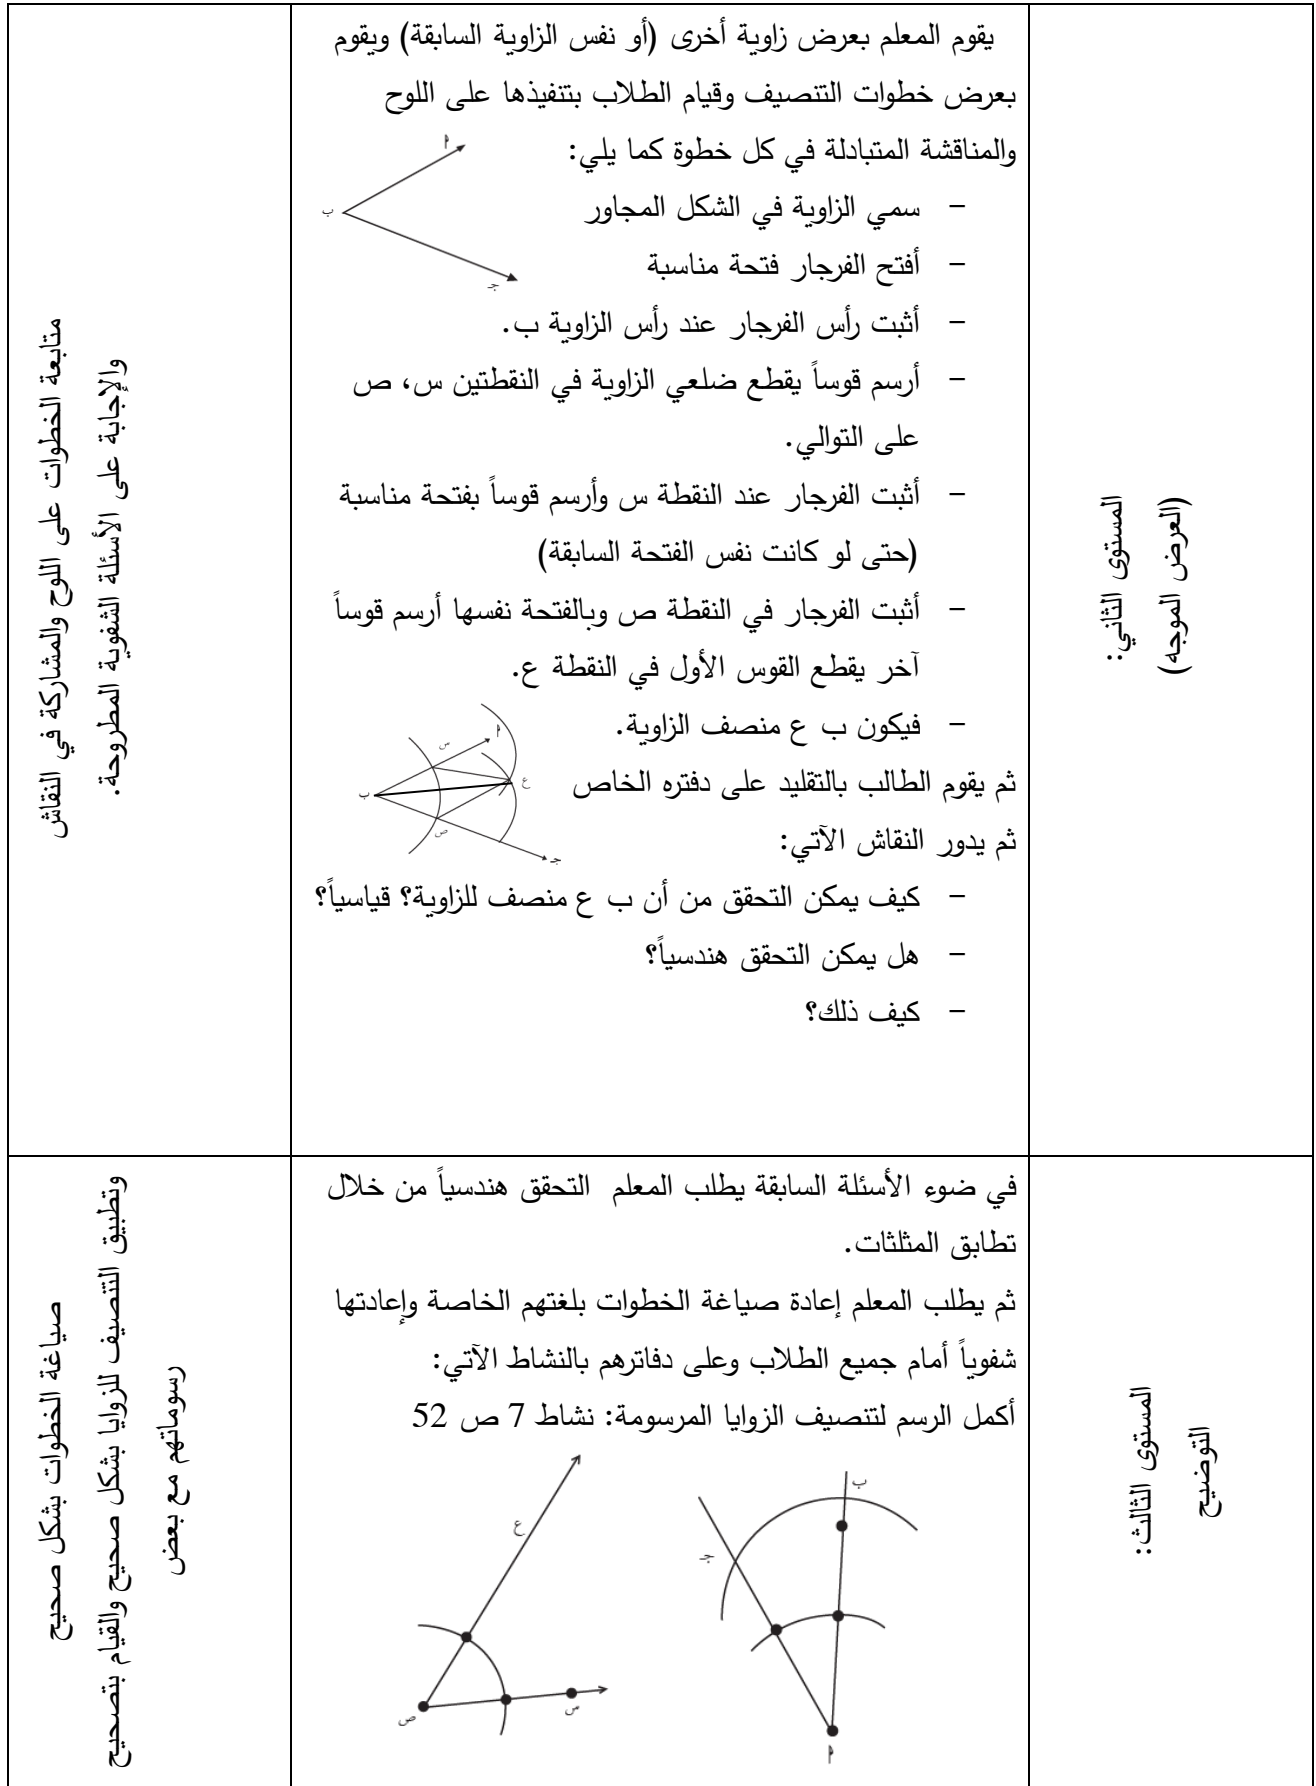 المستوى الثاني:
(العرض الموجه)
يقوم المعلم بعرض زاوية أخرى (أو نفس الزاوية السابقة) ويقوم
بعرض خطوات التنصيف وقيام الطلاب بتنفيذها على اللوح
والمناقشة المتبادلة في كل خطوة كما يلي:
- سمي الزاوية في الشكل المجاور
- أفتح الفرجار فتحة مناسبة
- أثبت رأس الفرجار عند رأس الزاوية ب.
- أرسم قوساً يقطع ضلعي الزاوية في النقطتين س، ص
على التوالي.
- أثبت الفرجار عند النقطة س وأرسم قوساً بفتحة مناسبة
(حتى لو كانت نفس الفتحة السابقة)
- أثبت الفرجار في النقطة ص وبالفتحة نفسها أرسم قوساً
آخر يقطع القوس الأول في النقطة ع.
- فيكون ب ع منصف الزاوية.
ثم يقوم الطالب بالتقليد على دفتره الخاص
ثم يدور النقاش الآتي:
- كيف يمكن التحقق من أن ب ع منصف للزاوية؟ قياسياً؟
- هل يمكن التحقق هندسياً؟
- كيف ذلك؟
أ
ب
جـ
أ
س
ع
ب
ص
جـ
متابعة الخطوات على اللوح والمشاركة في النقاش
والإجابة على الأسئلة الشفوية المطروحة.
المستوى الثالث:
التوضيح
في ضوء الأسئلة السابقة يطلب المعلم التحقق هندسياً من خلال
تطابق المثلثات.
ثم يطلب المعلم إعادة صياغة الخطوات بلغتهم الخاصة وإعادتها
شفوياً أمام جميع الطلاب وعلى دفاترهم بالنشاط الآتي:
أكمل الرسم لتنصيف الزوايا المرسومة: نشاط 7 ص 52
ب
جـ
أ
ع
س
ص
صياغة الخطوات بشكل صحيح
وتطبيق التنصيف للزوايا بشكل صحيح والقيام بتصحيح
رسوماتهم مع بعض